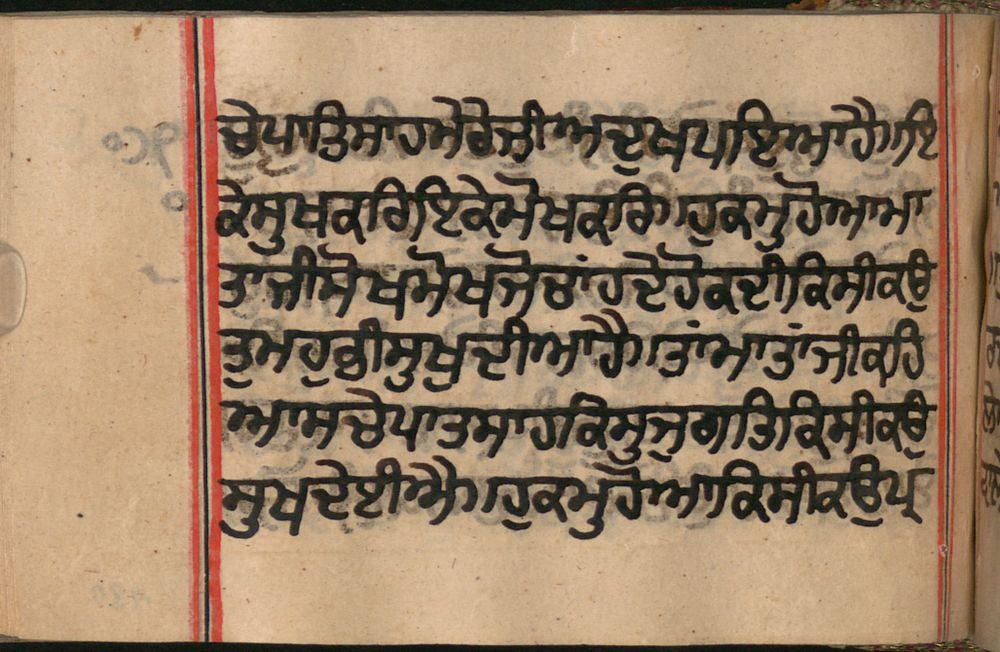 ਚੇਪਾਤਿਸਾਹਮੇਰੇਜੀਅਦੁਖਪਾਇਆਹੈ।ਇ
ਕੇਸੁਖਕਰਿਇਕੇਮੋਖਕਰਿ।ਹੁਕਮੁਹੋਆਮਾ
ਤਾਜੀਸੋਖਮੋਖਜੋਚਾਂਹਦੇਹੋਕਦੀਕਿਸੀਕਉ
ਤੁਮਹੁਭੀਸੁਖੁਦੀਆਹੈ।ਤਾਂਮਾਤਾਂਜੀਕਹਿ
ਆਸਚੇਪਾਤਸਾਹਕਿਸੁਜੁਗਤਿਕਿਸੀਕਉ
ਸੁਖਦੇਈਐ।ਹੁਕਮੁਹੋਆਕਿਸੀਕਉਪ੍